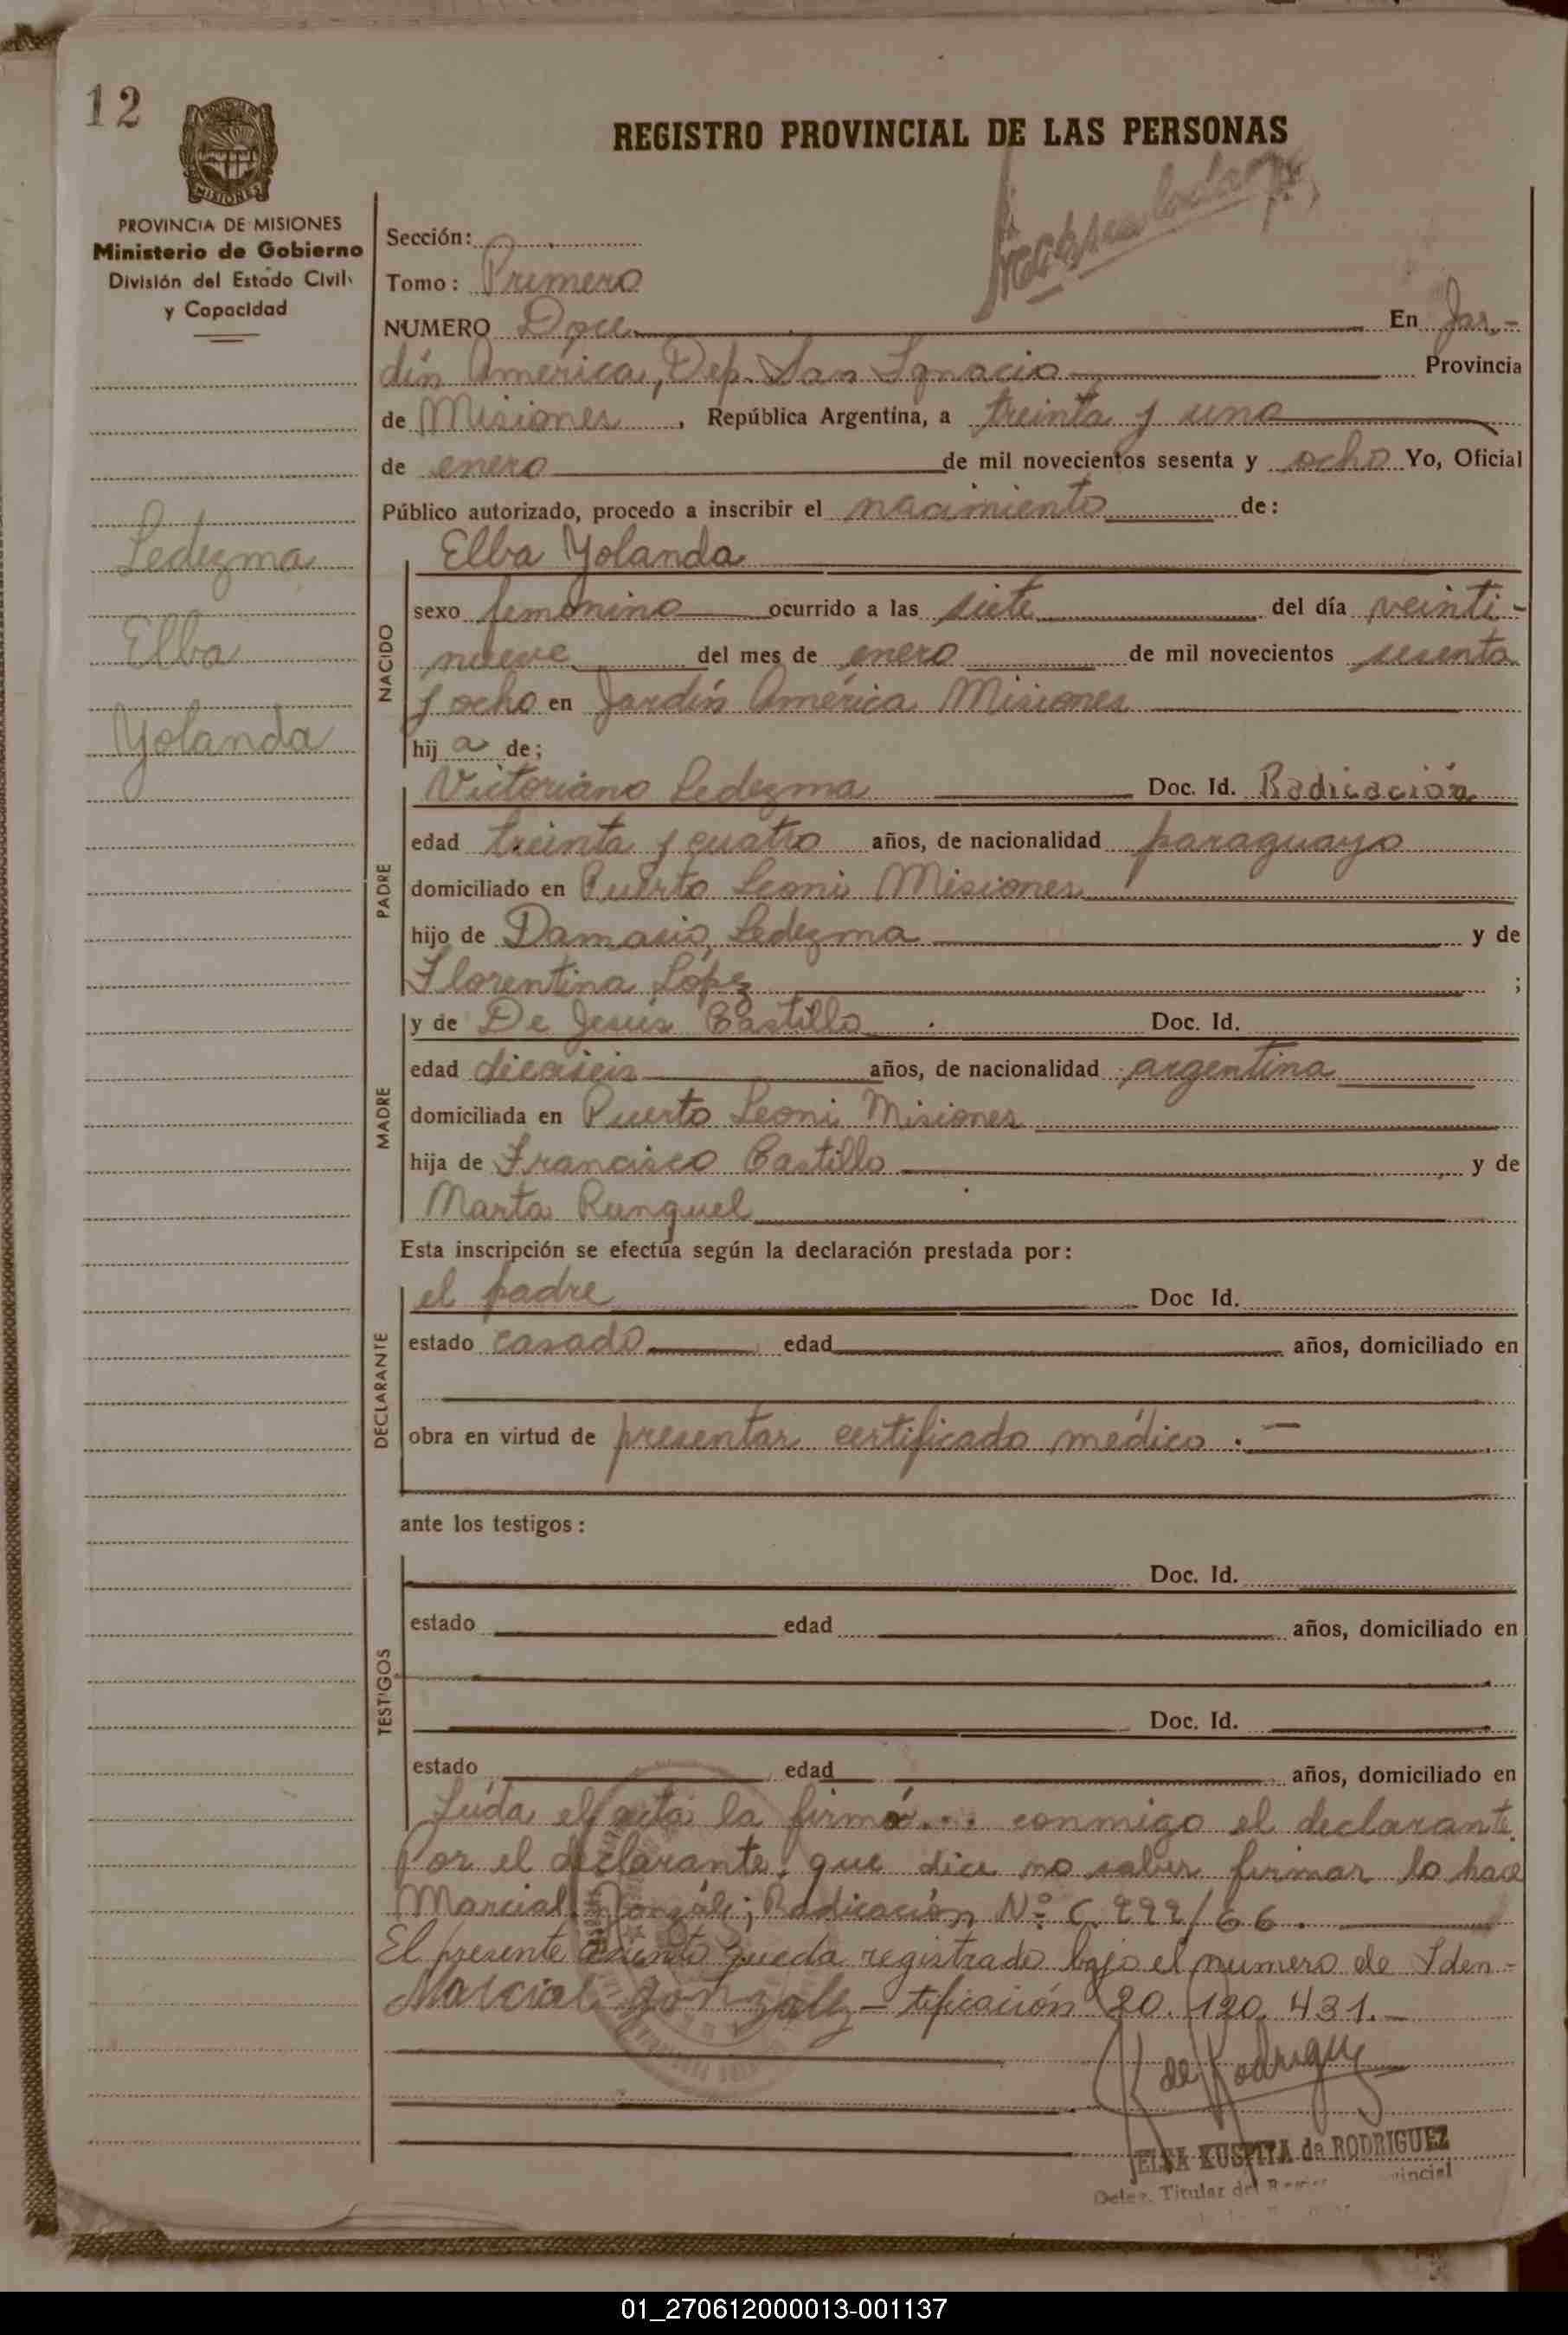 12
REGISTRO PROVINCIAL DE LAS PERSONAS
PROVINCIA DE MISIONES
MISIONES
PROVINCIA DE MISIONES
Ministerio de Gobierno
División del Estado Civil
y Capacidad
Ledezma
Elba
Yolanda
Sección:
Tomo: Primero
NUMERO Doce En Jar-
dín América, Dep. San Ignacio Provincia
de Misiones, República Argentina, a treinta y uno
de enero de mil novecientos sesenta y ocho Yo, Oficial
Público autorizado, procedo a inscribir el nacimiento de:
Elba Yolanda
NACIDO
sexo femenino ocurrido a las siete del día veinti-
nueve del mes de enero de mil novecientos sesenta
y ocho en Jardín América Misiones
hij a de;
PADRE
Victoriano Ledezma Doc. Id. Radicación
edad treinta y cuatro años, de nacionalidad paraguayo
domiciliado en Puerto Leoni Misiones
hijo de Damasio Ledezma y de
Florentina López ;
MADRE
y de De Jesús Castillo Doc. Id.
edad dieciseis años, de nacionalidad argentina
domiciliada en Puerto Leoni Misiones
hija de Francisco Castillo y de
Marta Runquel
Esta inscripción se efectúa según la declaración prestada por:
DECLARANTE
el padre Doc Id.
estado casado edad años, domiciliado en
obra en virtud de presentar certificado médico.-
ante los testigos:
TESTIGOS
Doc. Id.
estado edad años, domiciliado en
Doc. Id.
estado edad años, domiciliado en
Leída el acta la firmó... conmigo el declarante.
Por el declarante, que dice no saber firmar lo hace
Marcial Gonzáles; Radicación Nº C. 999/66.
El presente asiento queda registrado bajo el numero de Iden-
Marcial gonzalez - tificación 20.120.431.-
de Rodriguez
ELSA KUSPITA de RODRIGUEZ
Deleg. Titular del
01_270612000013-001137